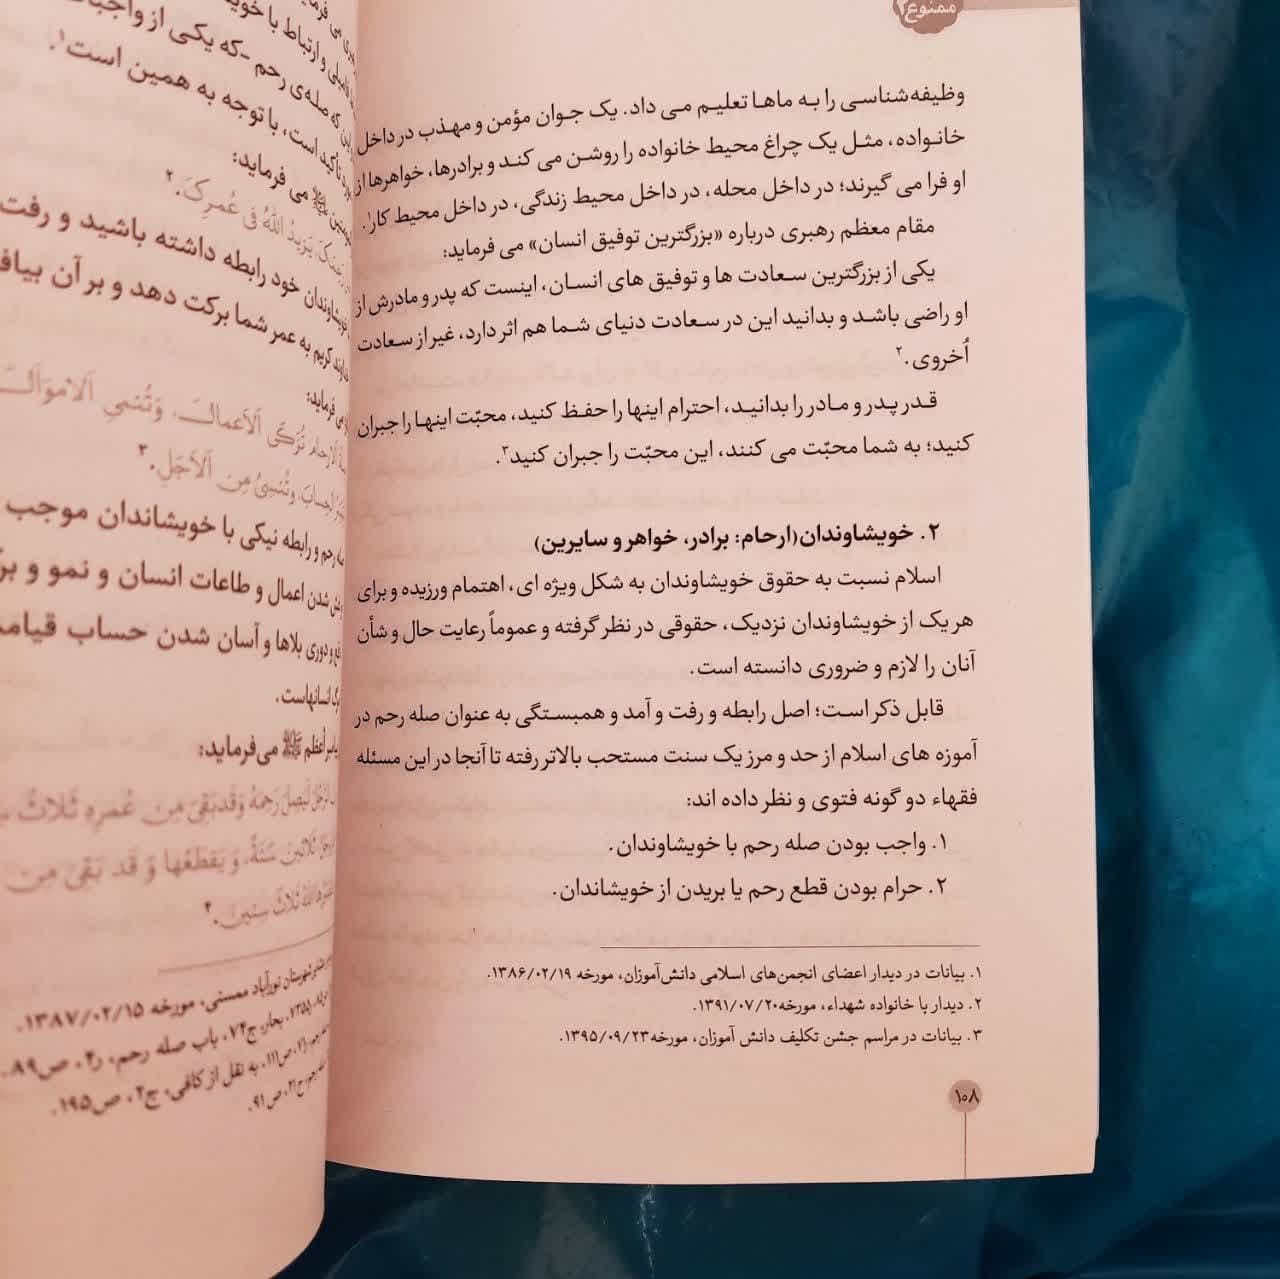 ممنوع ۲
وظیفه‌شناسی را به ماها تعلیم می داد. یک جوان مؤمن و مهذب در داخل
خانواده، مثل یک چراغ محیط خانواده را روشن می کند و برادرها، خواهرها از
او فرا می گیرند؛ در داخل محله، در داخل محیط زندگی، در داخل محیط کار۱.
مقام معظم رهبری درباره «بزرگترین توفیق انسان» می فرماید:
یکی از بزرگترین سعادت ها و توفیق های انسان، اینست که پدر و مادرش از
او راضی باشد و بدانید این در سعادت دنیای شما هم اثر دارد، غیر از سعادت
اُخروی.۲
قدر پدر و مادر را بدانید، احترام اینها را حفظ کنید، محبّت اینها را جبران
کنید؛ به شما محبّت می کنند، این محبّت را جبران کنید۳.
۲. خویشاوندان(ارحام: برادر، خواهر و سایرین)
اسلام نسبت به حقوق خویشاوندان به شکل ویژه ای، اهتمام ورزیده و برای
هر یک از خویشاوندان نزدیک، حقوقی در نظر گرفته و عموماً رعایت حال و شأن
آنان را لازم و ضروری دانسته است.
قابل ذکر است؛ اصل رابطه و رفت و آمد و همبستگی به عنوان صله رحم در
آموزه های اسلام از حد و مرز یک سنت مستحب بالاتر رفته تا آنجا در این مسئله
فقهاء دو گونه فتوی و نظر داده اند:
۱. واجب بودن صله رحم با خویشاوندان.
۲. حرام بودن قطع رحم یا بریدن از خویشاندان.
۱. بیانات در دیدار اعضای انجمن‌های اسلامی دانش‌آموزان، مورخه ۱۳۸۶/۰۲/۱۹.
۲. دیدار با خانواده شهداء، مورخه۱۳۹۱/۰۷/۲۰.
۳. بیانات در مراسم جشن تکلیف دانش آموزان، مورخه۱۳۹۵/۰۹/۲۳.
۱۰۸
می فرماید
و ارتباط با خویش
که صله‌ی رحم -که یکی از واجبات
تأکید است، با توجه به همین است۱.
می فرماید:
یَزِیدُ اللهُ فی عُمرِکَ.۲
خویشاوندان خود رابطه داشته باشید و رفت
کریم به عمر شما برکت دهد و بر آن بیاف
می فرماید:
تُزَکّی اَلاَعمالَ، وَتُنمِی اَلاموَالَ
الحِسابَ، وتُنسِیُ مِنَ اَلاَجَلِ.۳
رحم و رابطه نیکی با خویشاندان موجب
شدن اعمال و طاعات انسان و نمو و بر
و دوری بلاها و آسان شدن حساب قیام
انسانهاست.
أعظم ﷺ می‌فرماید:
لَیَصِلُ رَحِمَهُ وَقَدبَقِیَ مِن عُمرِهِ ثَلاثُ
ثَلاثِینَ سَنَةً، وَ یَقطَعُها وَ قَد بَقِیَ مِن
اللهُ ثَلاثَ سِنِینَ.۴
شهرستان نورآباد ممسنی، مورخه ۱۳۸۷/۰۲/۱۵.
بحار، ج۷۴، باب صله رحم، ر۴، ص۸۹.
ص۱۱۱، به نقل از کافی، ج۲، ص۱۹۵.
ص۹۱.